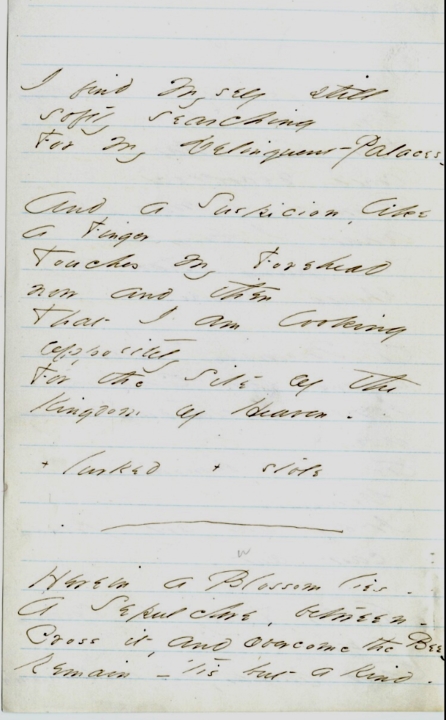 I find myself still
softly searching
For my Delinquent Palaces
And a Suspicion, like
a Finger
Touches my Forehead
now and then
That I am looking
oppositely
For the Site of the
Kingdom of Heaven -
+ lurked +
Herein a Blossom lies -
A Sepulchre, between -
Cross it, and overcome the Bee -
Remain - 'tis but a Rind -